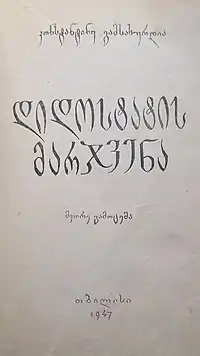 კონსტანტინე გამსახურდია
დიდოსტატის
მარჯვენა
მეორე გამოცემა
თბილისი
1947